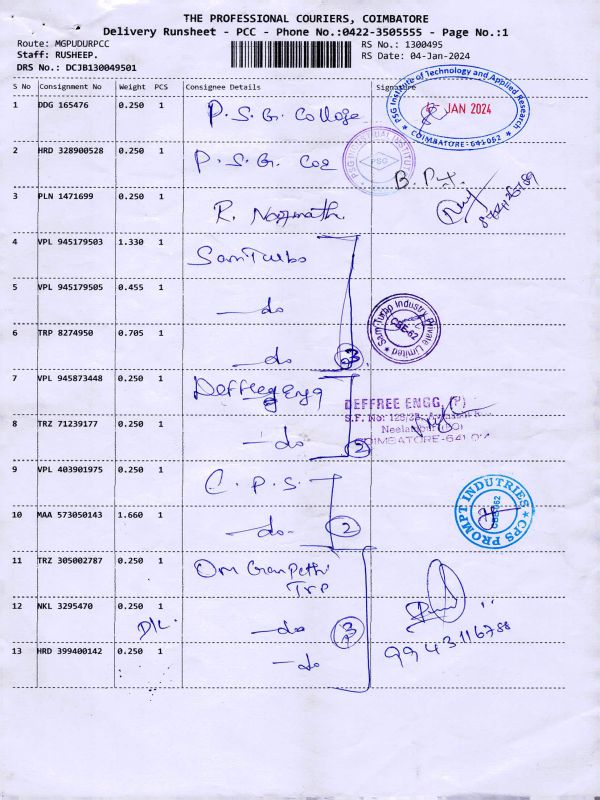 THE PROFESSIONAL COURIERS, COIMBATORE
Delivery Runsheet - PCC - Phone No.:0422-3505555 - Page No.:1
Route: MGPUDURPCC RS No.: 1300495
Staff: RUSHEEP. RS Date: 04-Jan-2024
DRS No.: DCJB130049501
S No Consignment No Weight PCS Consignee Details Signature
PSG Institute of Technology and Applied Research
JAN 2024
* COIMBATORE-641 062 *
1 DDG 165476 0.250 1 P.S.G. College
2 HRD 328900528 0.250 1 P.S.G. Coe
PSG
B.
3 PLN 1471699 0.250 1 R.
4 VPL 945179503 1.330 1 Sam Turbo
5 VPL 945179505 0.455 1 —do
Sam Turbo Industry Private Limited
CBE-62
6 TRP 8274950 0.705 1 —do 3
7 VPL 945873448 0.250 1 Deffree Engg
DEFFREE ENGG, (P)
S.F. No:
8 TRZ 71239177 0.250 1 —do 2
Neelambur (PO)
COIMBATORE-641
9 VPL 403901975 0.250 1 C.P.S.
CPS PROMPT INDUTRIES
10 MAA 573050143 1.660 1 —do- 2
11 TRZ 305002787 0.250 1 Om Ganpethi
Trp
12 NKL 3295470 0.250 1 —do 3
D/L.
9943116788
13 HRD 399400142 0.250 1 —do